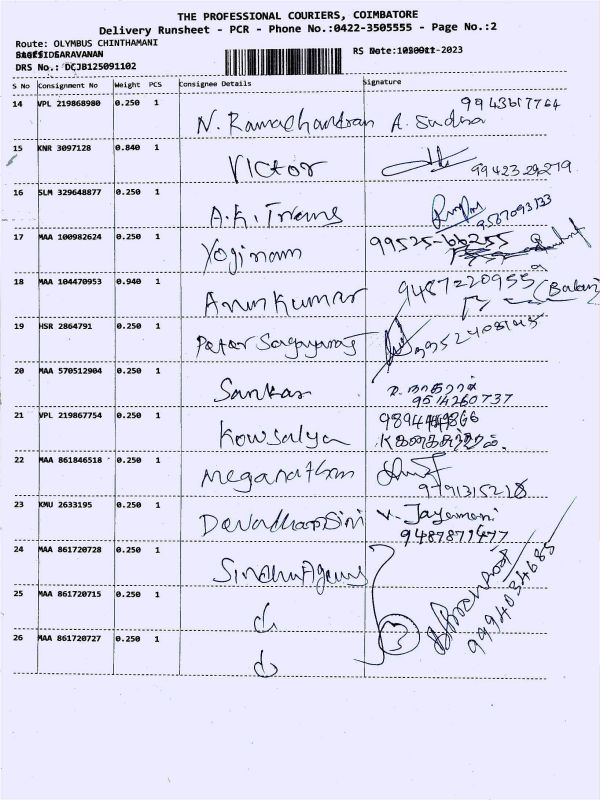 THE PROFESSIONAL COURIERS, COIMBATORE
Delivery Runsheet - PCR - Phone No.:0422-3505555 - Page No.:2
Route: OLYMBUS CHINTHAMANI
RS Date:
-2023
DRS No.: DCJB125091102
S No Consignment No Weight PCS Consignee Details Signature
14 VPL 219868980 0.250 1 N. Ramachandran A. Sudha 9943617764
15 KNR 3097128 0.840 1 Victor 9942329279
16 SLM 329648877 0.250 1 A.K. 9567093133
17 MAA 100982624 0.250 1 99525-66255
18 MAA 104470953 0.940 1 Arunkumar 9487220955
19 HSR 2864791 0.250 1 Peter Sagayaraj
20 MAA 570512904 0.250 1 Sankar
9514260737
21 VPL 219867754 0.250 1 Kowsalya
22 MAA 861846518 0.250 1 Meganathan
9791315218
23 KMU 2633195 0.250 1 V. Jayamani
9487871477
24 MAA 861720728 0.250 1
25 MAA 861720715 0.250 1
26 MAA 861720727 0.250 1 3 9994034685